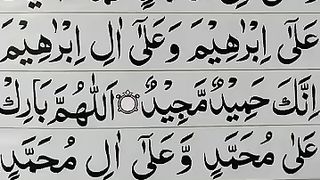 عَلٰٓى اِبْرٰهِيْمَ وَعَلٰٓى اٰلِ اِبْرٰهِيْمَ
اِنَّكَ حَمِيْدٌ مَّجِيْدٌ ۝ اَللّٰهُمَّ بَارِكْ
عَلٰى مُحَمَّدٍ وَّعَلٰٓى اٰلِ مُحَمَّدٍ